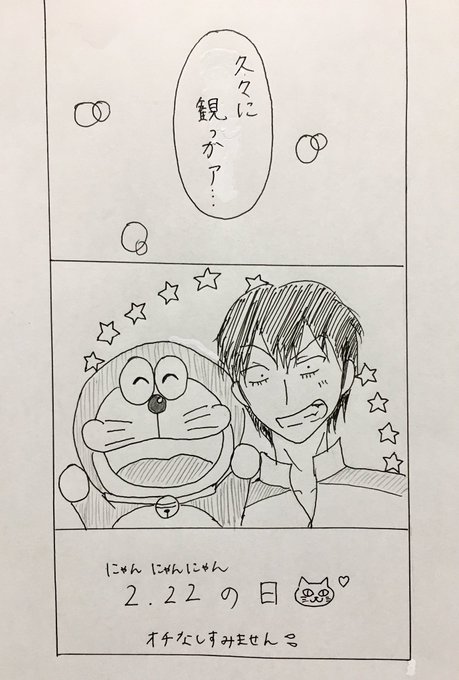 久々に
観っかァ…
にゃん にゃんにゃん
2.22の日
オチなしすみません